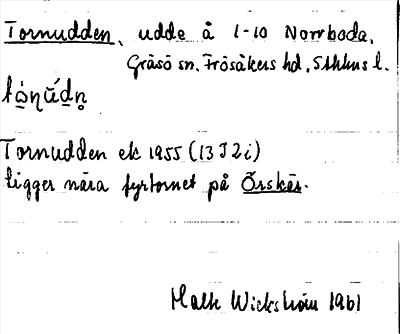 Tornudden, udde å 1-10 Norrboda,
Gräsö sn, Frösåkers hd, Sthlms l.
Tornudden ek 1955 (13 I 2 i)
ligger nära fyrtornet på Örskär.
Malte Wickström 1961